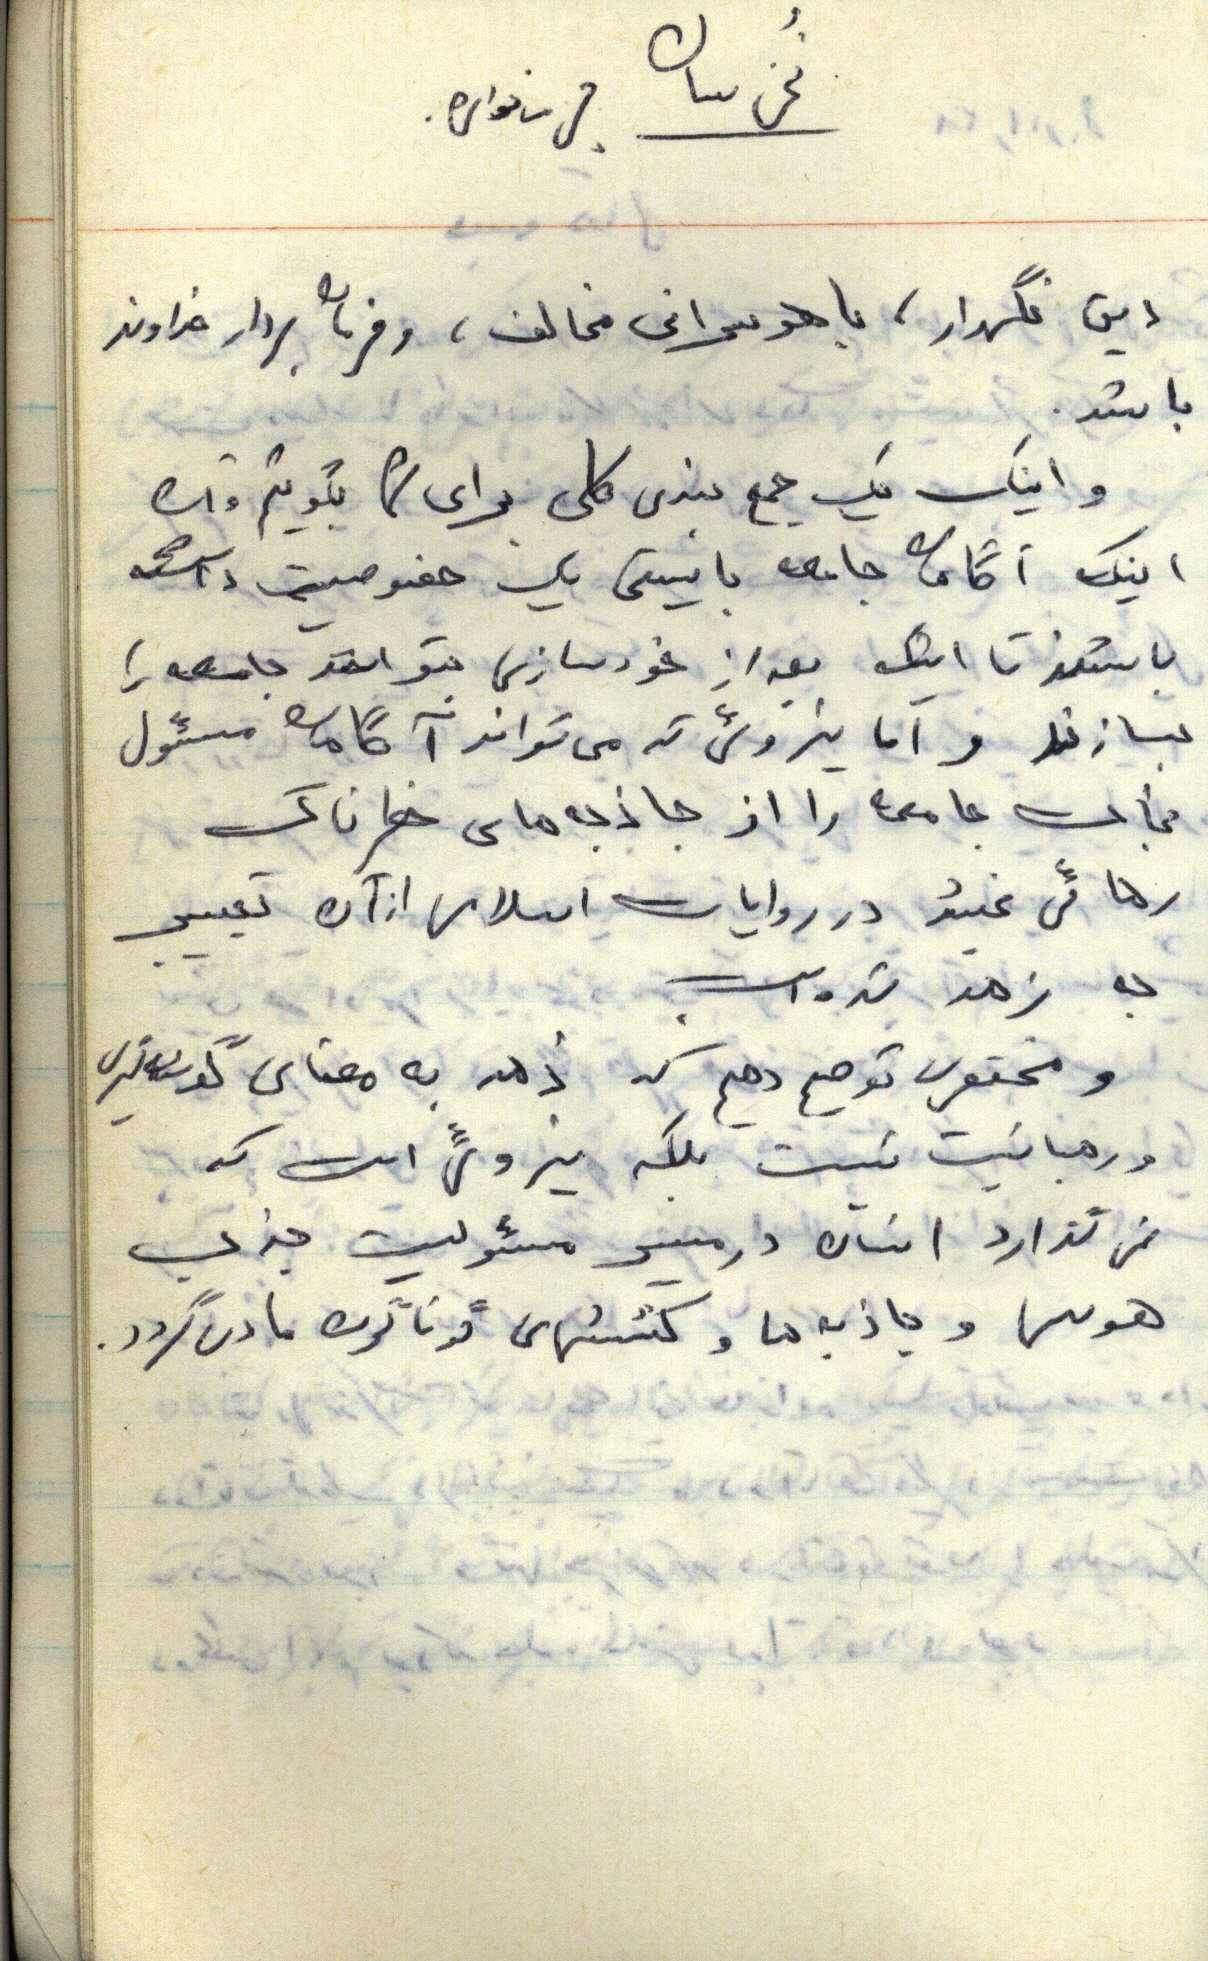 دین نگهدار، با هوسرانی مخالف، و فرمان بردار خداوند
باشد.
و اینک یک جمع بندی کلی برای شما بگویم و آن
اینک آگاهان جامعه بایستی یک خصوصیت داشته
باشند تا اینک بعد از خودسازی بتوانند جامعه را
بسازند و اما نیروئی که می تواند آگاهان مسئول
جامعه را از جاذبه های خطرناک
رهائی بخشد در روایات اسلامی از آن تعبیر
به زهد شده است
و مختصری توضیح دهیم که زهد به معنای گوشه گیری
و رهبانیت نیست بلکه نیروئی است که
نمی گذارد انسان در مسیر مسئولیت جذب
هوسها و جاذبه ها و کششهای گوناگون مادی گردد.